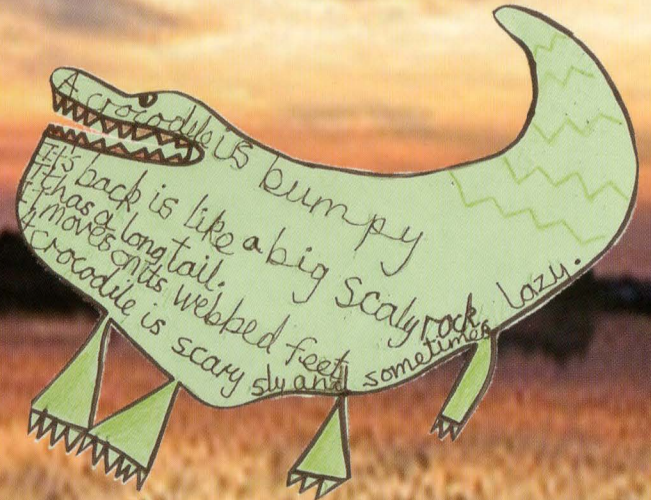 A crocodile is bumpy
It's back is like a big scaly rock
It has a long tail.
It moves on its webbed feet
A crocodile is scary sly and sometimes lazy.